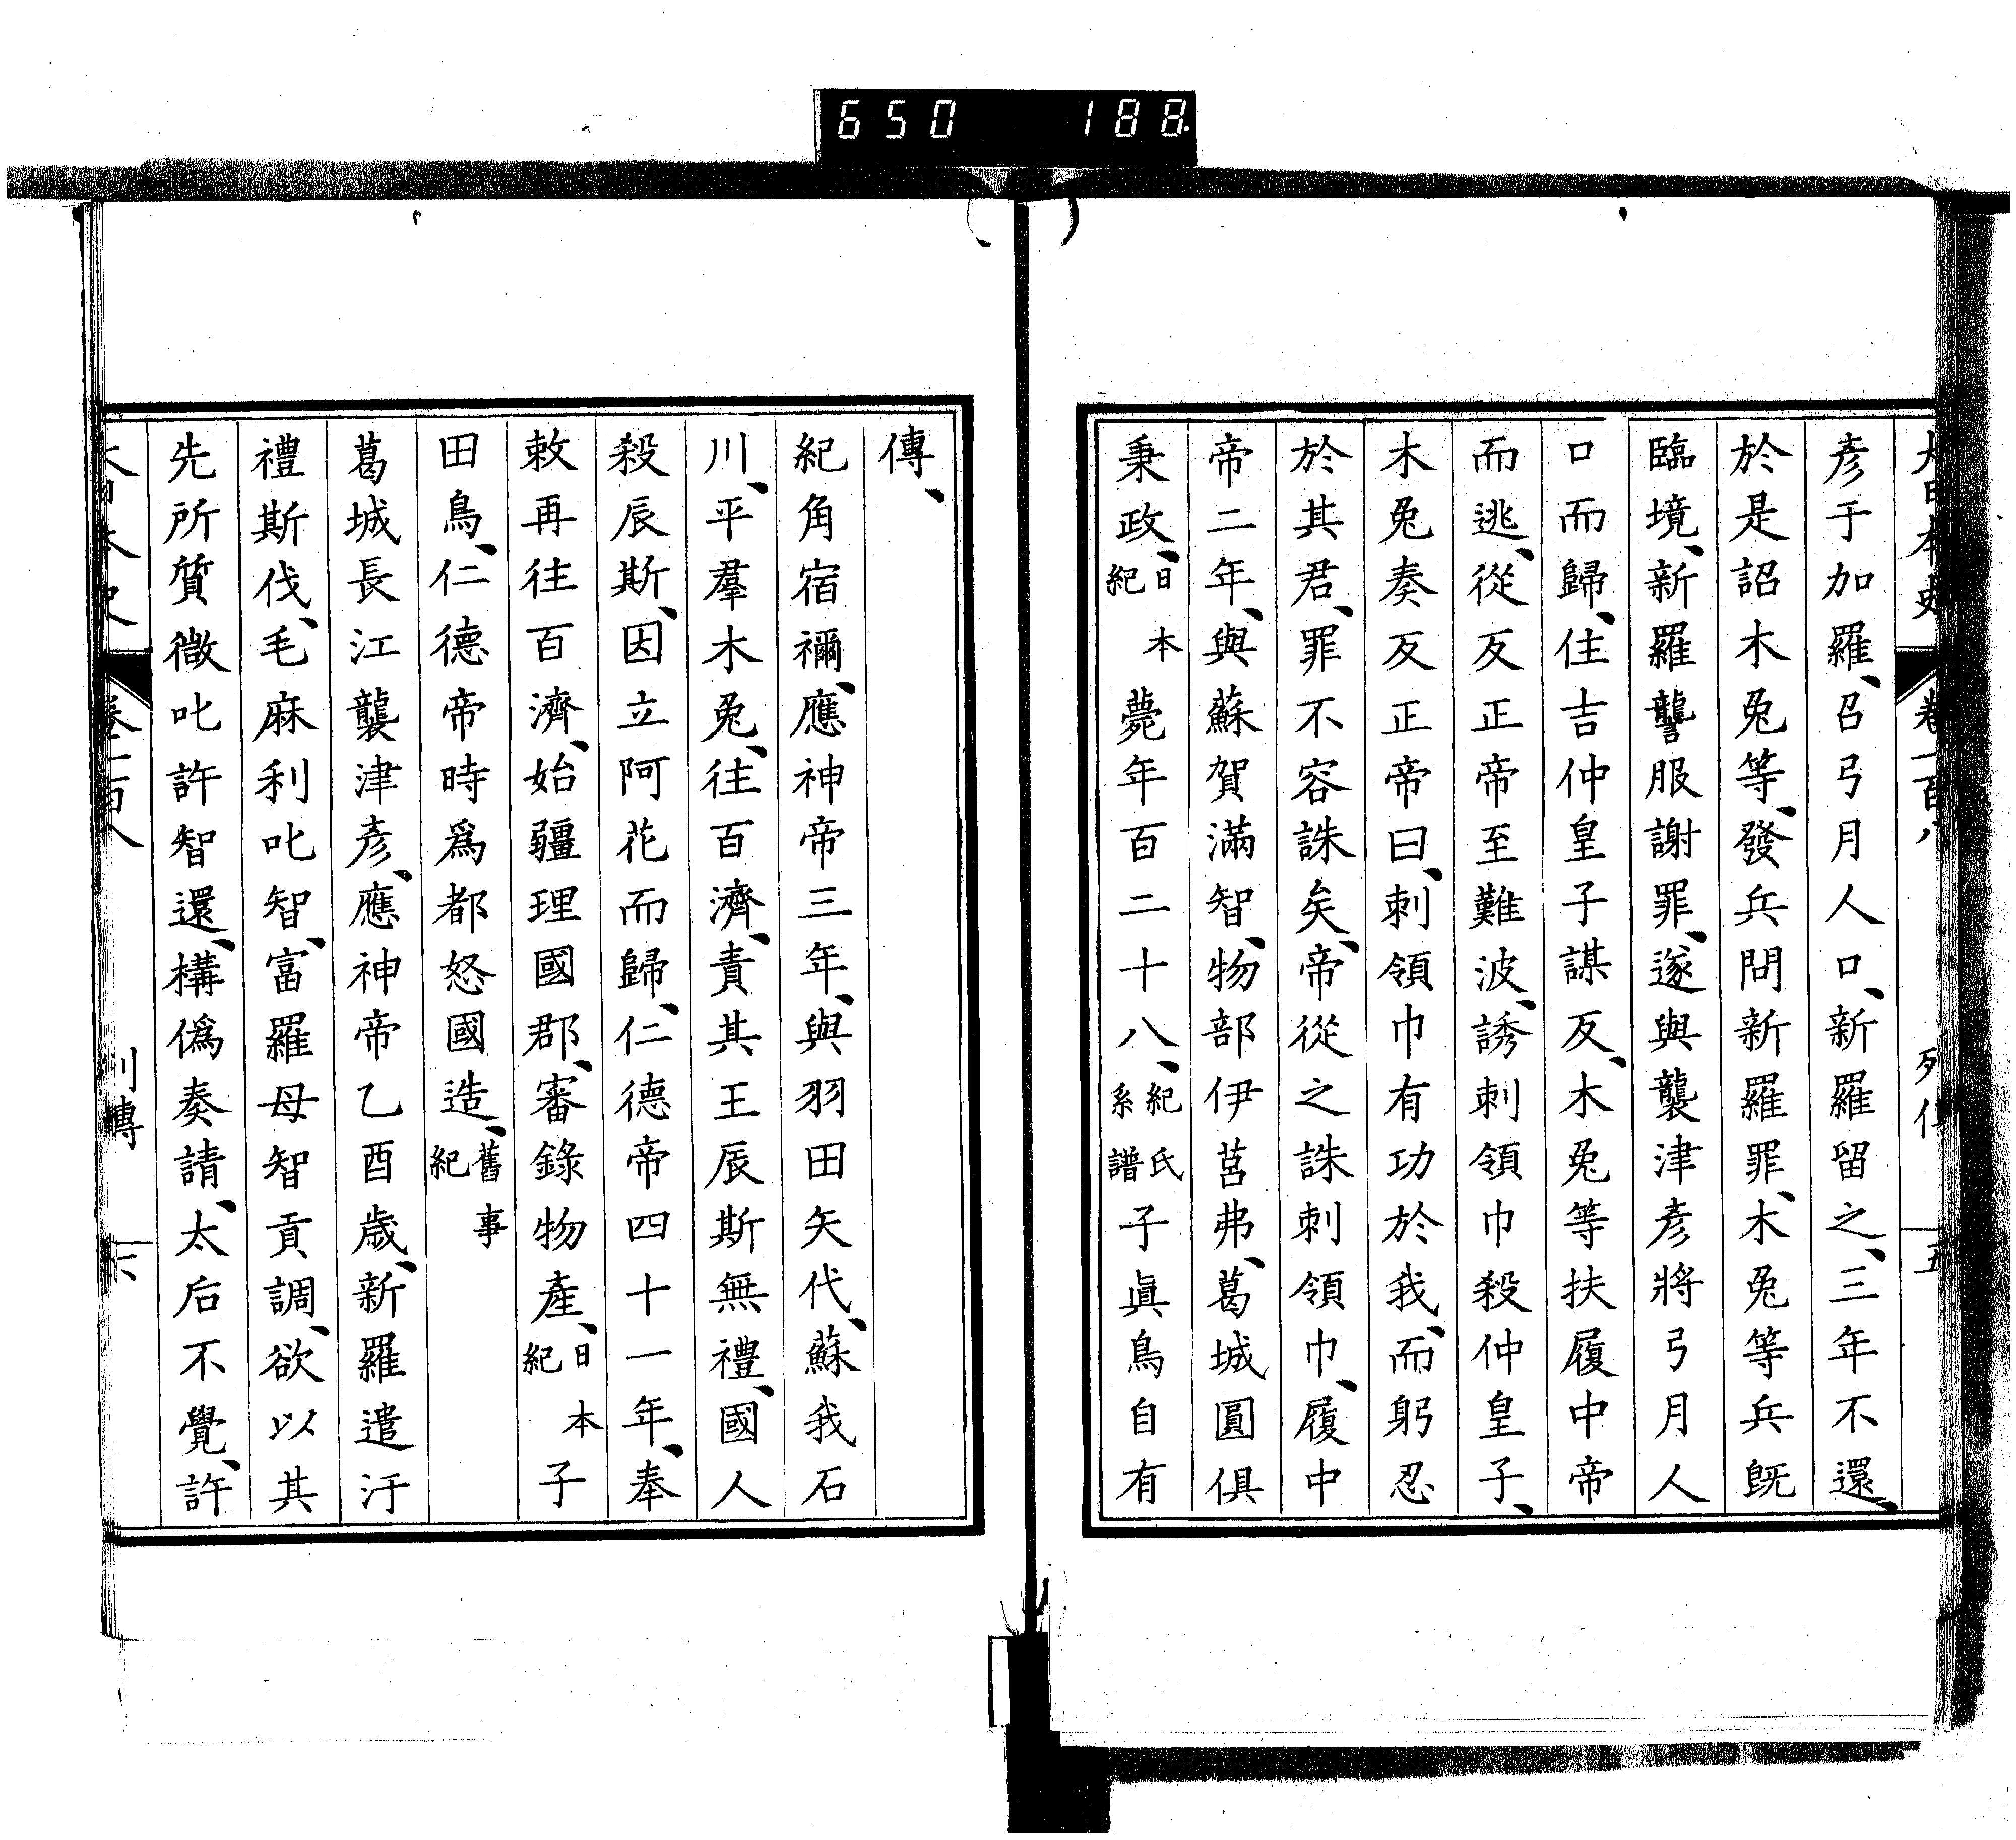 650 188.
大日本史 卷一百八 列傳 五
彥于加羅、召弓月人口、新羅留之、三年不還、
於是詔木兔等、發兵問新羅罪、木兔等兵旣
臨境、新羅讋服謝罪、遂與襲津彥將弓月人
口而歸、住吉仲皇子謀反、木兔等扶履中帝
而逃、從反正帝至難波、誘刺領巾殺仲皇子、
木兔奏反正帝曰、刺領巾有功於我、而躬忍
於其君、罪不容誅矣、帝從之誅刺領巾、履中
帝二年、與蘇賀滿智、物部伊莒弗、葛城圓俱
秉政、日本紀 薨年百二十八、紀氏系譜 子眞鳥自有
傳、
紀角宿禰、應神帝三年、與羽田矢代、蘇我石
川、平羣木兔、往百濟、責其王辰斯無禮、國人
殺辰斯、因立阿花而歸、仁德帝四十一年、奉
敕再往百濟、始疆理國郡、審錄物產、日本紀 子
田鳥、仁德帝時爲都怒國造、舊事紀
葛城長江襲津彥、應神帝乙酉歲、新羅遣汙
禮斯伐、毛麻利叱智、富羅母智貢調、欲以其
先所質微叱許智還、構僞奏請、太后不覺、許
大日本史 卷一百八 列傳 六